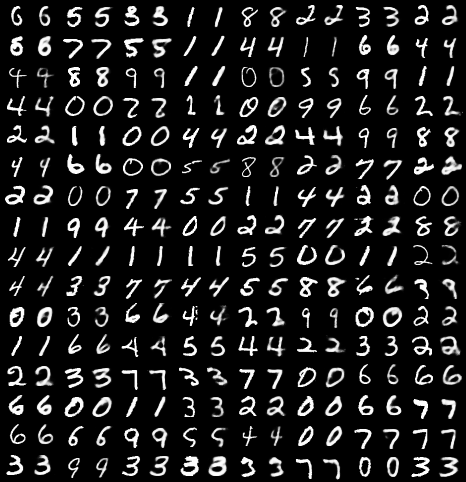 6 6 5 5 3 3 1 1 8 8 2 2 3 3 2 2
6 6 7 7 5 5 1 1 4 4 1 1 6 6 4 4
4 4 8 8 9 9 1 1 0 0 5 5 9 9 1 1
4 4 0 0 2 2 1 1 0 0 9 9 6 6 2 2
2 2 1 1 0 0 4 4 2 2 4 4 9 9 8 8
4 4 6 6 0 0 5 5 8 8 2 2 7 7 2 2
2 2 0 0 7 7 5 5 1 1 4 4 2 2 0 0
1 1 9 9 4 4 0 0 2 2 7 7 2 2 8 8
4 4 1 1 1 1 1 1 5 5 0 0 1 1 2 2
4 4 3 3 7 7 4 4 5 5 8 8 6 6 3 9
0 0 3 3 6 6 4 4 2 2 9 9 0 0 2 2
1 1 6 6 4 4 5 5 4 4 2 2 3 3 2 2
2 2 3 3 7 7 3 3 7 7 0 0 6 6 6 6
6 6 0 0 1 1 3 3 2 2 0 0 6 6 7 7
6 6 6 6 9 9 5 5 4 4 0 0 7 7 7 7
3 3 9 9 3 3 3 3 3 3 7 7 0 0 3 3